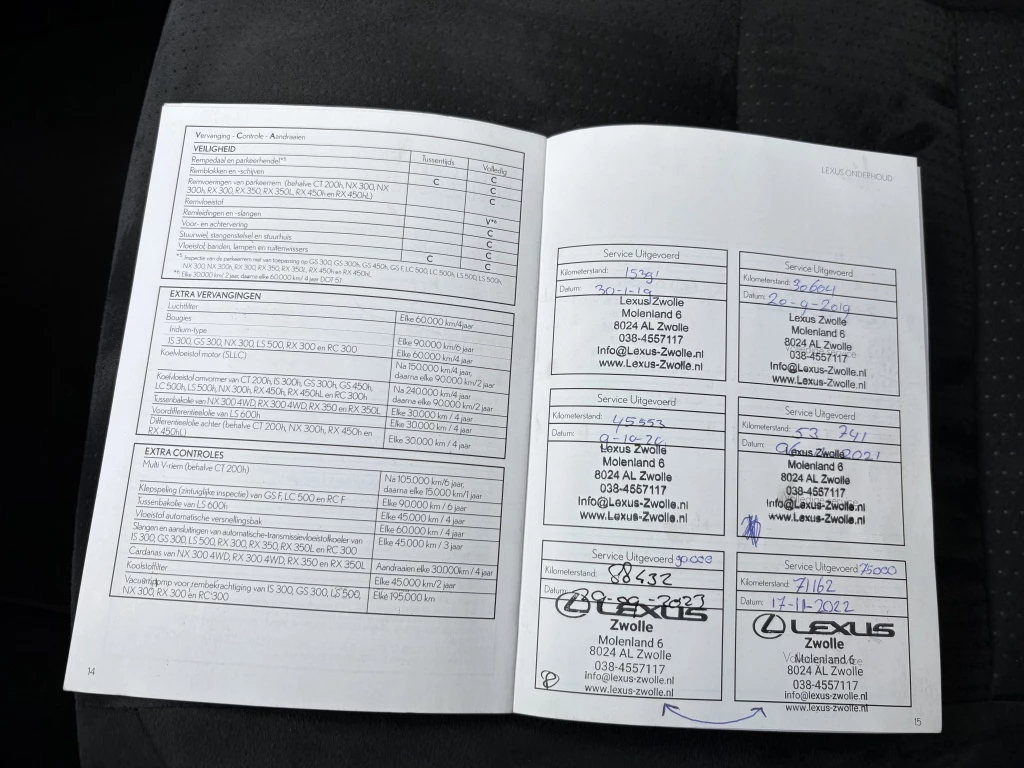 Vervanging - Controle - Aandraaien
VEILIGHEID Tussentijds Volledig
Rempedaal en parkeerhendel*⁵ C
Remblokken en -schijven C C
Remvoeringen van parkeerrem (behalve CT 200h, NX 300, NX 300h, RX 300, RX 350, RX 350L, RX 450h en RX 450hL) C
Remvloeistof V*⁶
Remleidingen en -slangen C
Voor- en achtervering C
Stuurwiel, stangenstelsel en stuurhuis C
Vloeistof, banden, lampen en ruitenwissers C C
*⁵: Inspectie van de parkeerrem niet van toepassing op GS 300, GS 300h, GS 450h, GS F, LC 500, LC 500h, LS 500, LS 500h,
NX 300, NX 300h, RX 300, RX 350, RX 350L, RX 450h en RX 450hL
*⁶: Elke 30.000 km/ 2 jaar, daarna elke 60.000 km/ 4 jaar DOT 5.1
EXTRA VERVANGINGEN
Luchtfilter Elke 60.000 km/4jaar
Bougies
Iridium-type Elke 90.000 km/6 jaar
IS 300, GS 300, NX 300, LS 500, RX 300 en RC 300 Elke 60.000 km/4 jaar
Koelvloeistof motor (SLLC) Na 150.000 km/4 jaar,
daarna elke 90.000 km/2 jaar
Koelvloeistof omvormer van CT 200h, IS 300h, GS 300h, GS 450h, Na 240.000 km/4 jaar
LC 500h, LS 500h, NX 300h, RX 450h, RX 450hL en RC 300h daarna elke 90.000 km/2 jaar
Tussenbakolie van NX 300 4WD, RX 300 4WD, RX 350 en RX 350L Elke 30.000 km / 4 jaar
Voordifferentieelolie van LS 600h Elke 30.000 km / 4 jaar
Differentieelolie achter (behalve CT 200h, NX 300h, RX 450h en
RX 450hL) Elke 30.000 km / 4 jaar
EXTRA CONTROLES
Multi V-riem (behalve CT 200h) Na 105.000 km/6 jaar,
daarna elke 15.000 km/1 jaar
Klepspeling (zintuiglijke inspectie) van GS F, LC 500 en RC F Elke 90.000 km / 6 jaar
Tussenbakolie van LS 600h Elke 45.000 km / 4 jaar
Vloeistof automatische versnellingsbak Elke 60.000 km / 4 jaar
Slangen en aansluitingen van automatische-transmissievloeistofkoeler van
IS 300, GS 300, LS 500, RX 300, RX 350, RX 350L en RC 300 Elke 45.000 km / 3 jaar
Cardanas van NX 300 4WD, RX 300 4WD, RX 350 en RX 350L Aandraaien elke 30.000km / 4 jaar
Koolstoffilter Elke 45.000 km/2 jaar
Vacuümpomp voor rembekrachtiging van IS 300, GS 300, LS 500,
NX 300, RX 300 en RC 300 Elke 195.000 km
14
LEXUS ONDERHOUD
Service Uitgevoerd
Kilometerstand: 15391
Datum: 30-1-19
Lexus Zwolle
Molenland 6
8024 AL Zwolle
038-4557117
Info@Lexus-Zwolle.nl
www.Lexus-Zwolle.nl
Service Uitgevoerd
Kilometerstand: 30604
Datum: 20-9-2019
Lexus Zwolle
Molenland 6
8024 AL Zwolle
038-4557117
Info@Lexus-Zwolle.nl
www.Lexus-Zwolle.nl
Service Uitgevoerd
Kilometerstand: 45553
Datum: 9-10-20
Lexus Zwolle
Molenland 6
8024 AL Zwolle
038-4557117
Info@Lexus-Zwolle.nl
www.Lexus-Zwolle.nl
Service Uitgevoerd
Kilometerstand: 53 741
Datum: 2021
Lexus Zwolle
Molenland 6
8024 AL Zwolle
038-4557117
Info@Lexus-Zwolle.nl
www.Lexus-Zwolle.nl
Service Uitgevoerd 90000
Kilometerstand: 88432
Datum: 2023
LEXUS
Zwolle
Molenland 6
8024 AL Zwolle
038-4557117
info@lexus-zwolle.nl
www.lexus-zwolle.nl
8
Service Uitgevoerd 75000
Kilometerstand: 71162
Datum: 17-11-2022
LEXUS
Zwolle
Molenland 6
8024 AL Zwolle
038-4557117
info@lexus-zwolle.nl
www.lexus-zwolle.nl
15